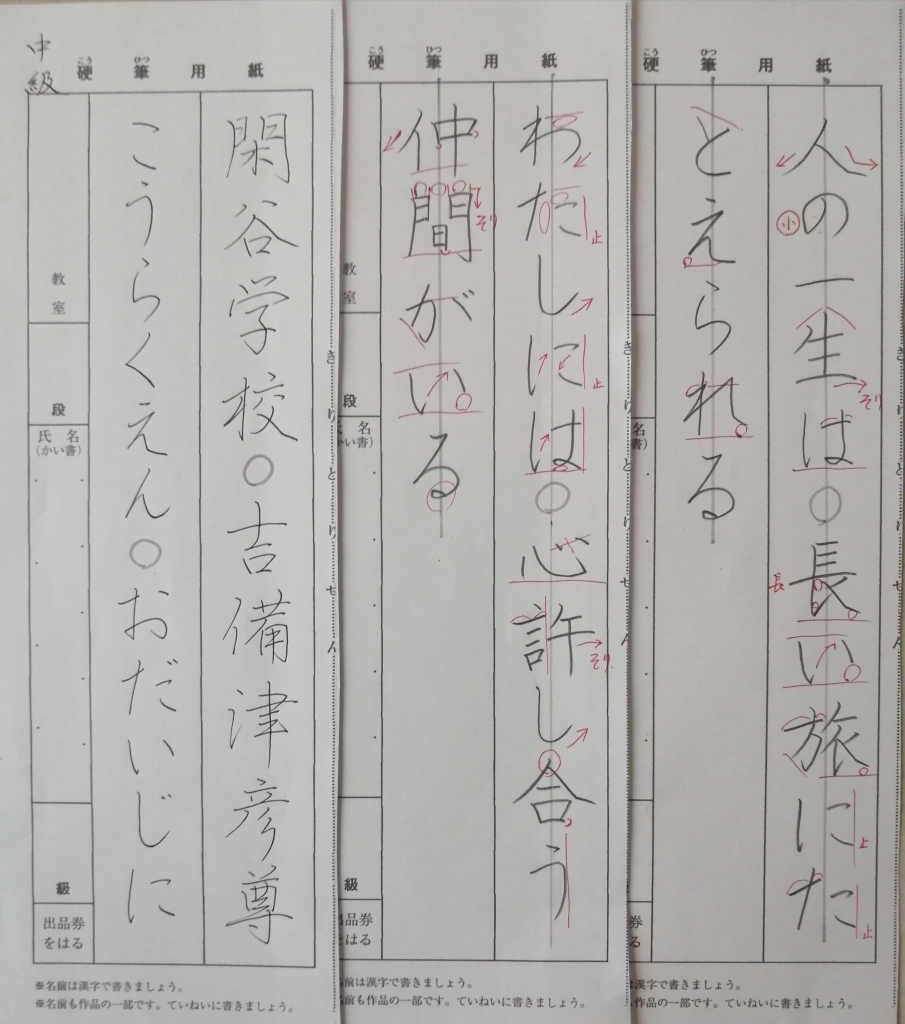 硬筆用紙
こう
ひつ
人の一生は○長い旅にた
とえられる
小
そり
止
長
止
教室
きりとりせん
硬筆用紙
こう
ひつ
わたしには○心許し合う
仲間がいる
止
止
そり
そり
教室
段
級
きりとりせん
硬筆用紙
こう
ひつ
中級
閑谷学校○吉備津彦尊
こうらくえん○おだいじに
教室
段
氏名
(かい書)
級
出品券
をはる
きりとりせん
※名前は漢字で書きましょう。
※名前も作品の一部です。ていねいに書きましょう。
前は漢字で書きましょう。
前も作品の一部です。ていねいに書きましょう。
は漢字で書きましょう。
も作品の一部です。ていねいに書きましょう。